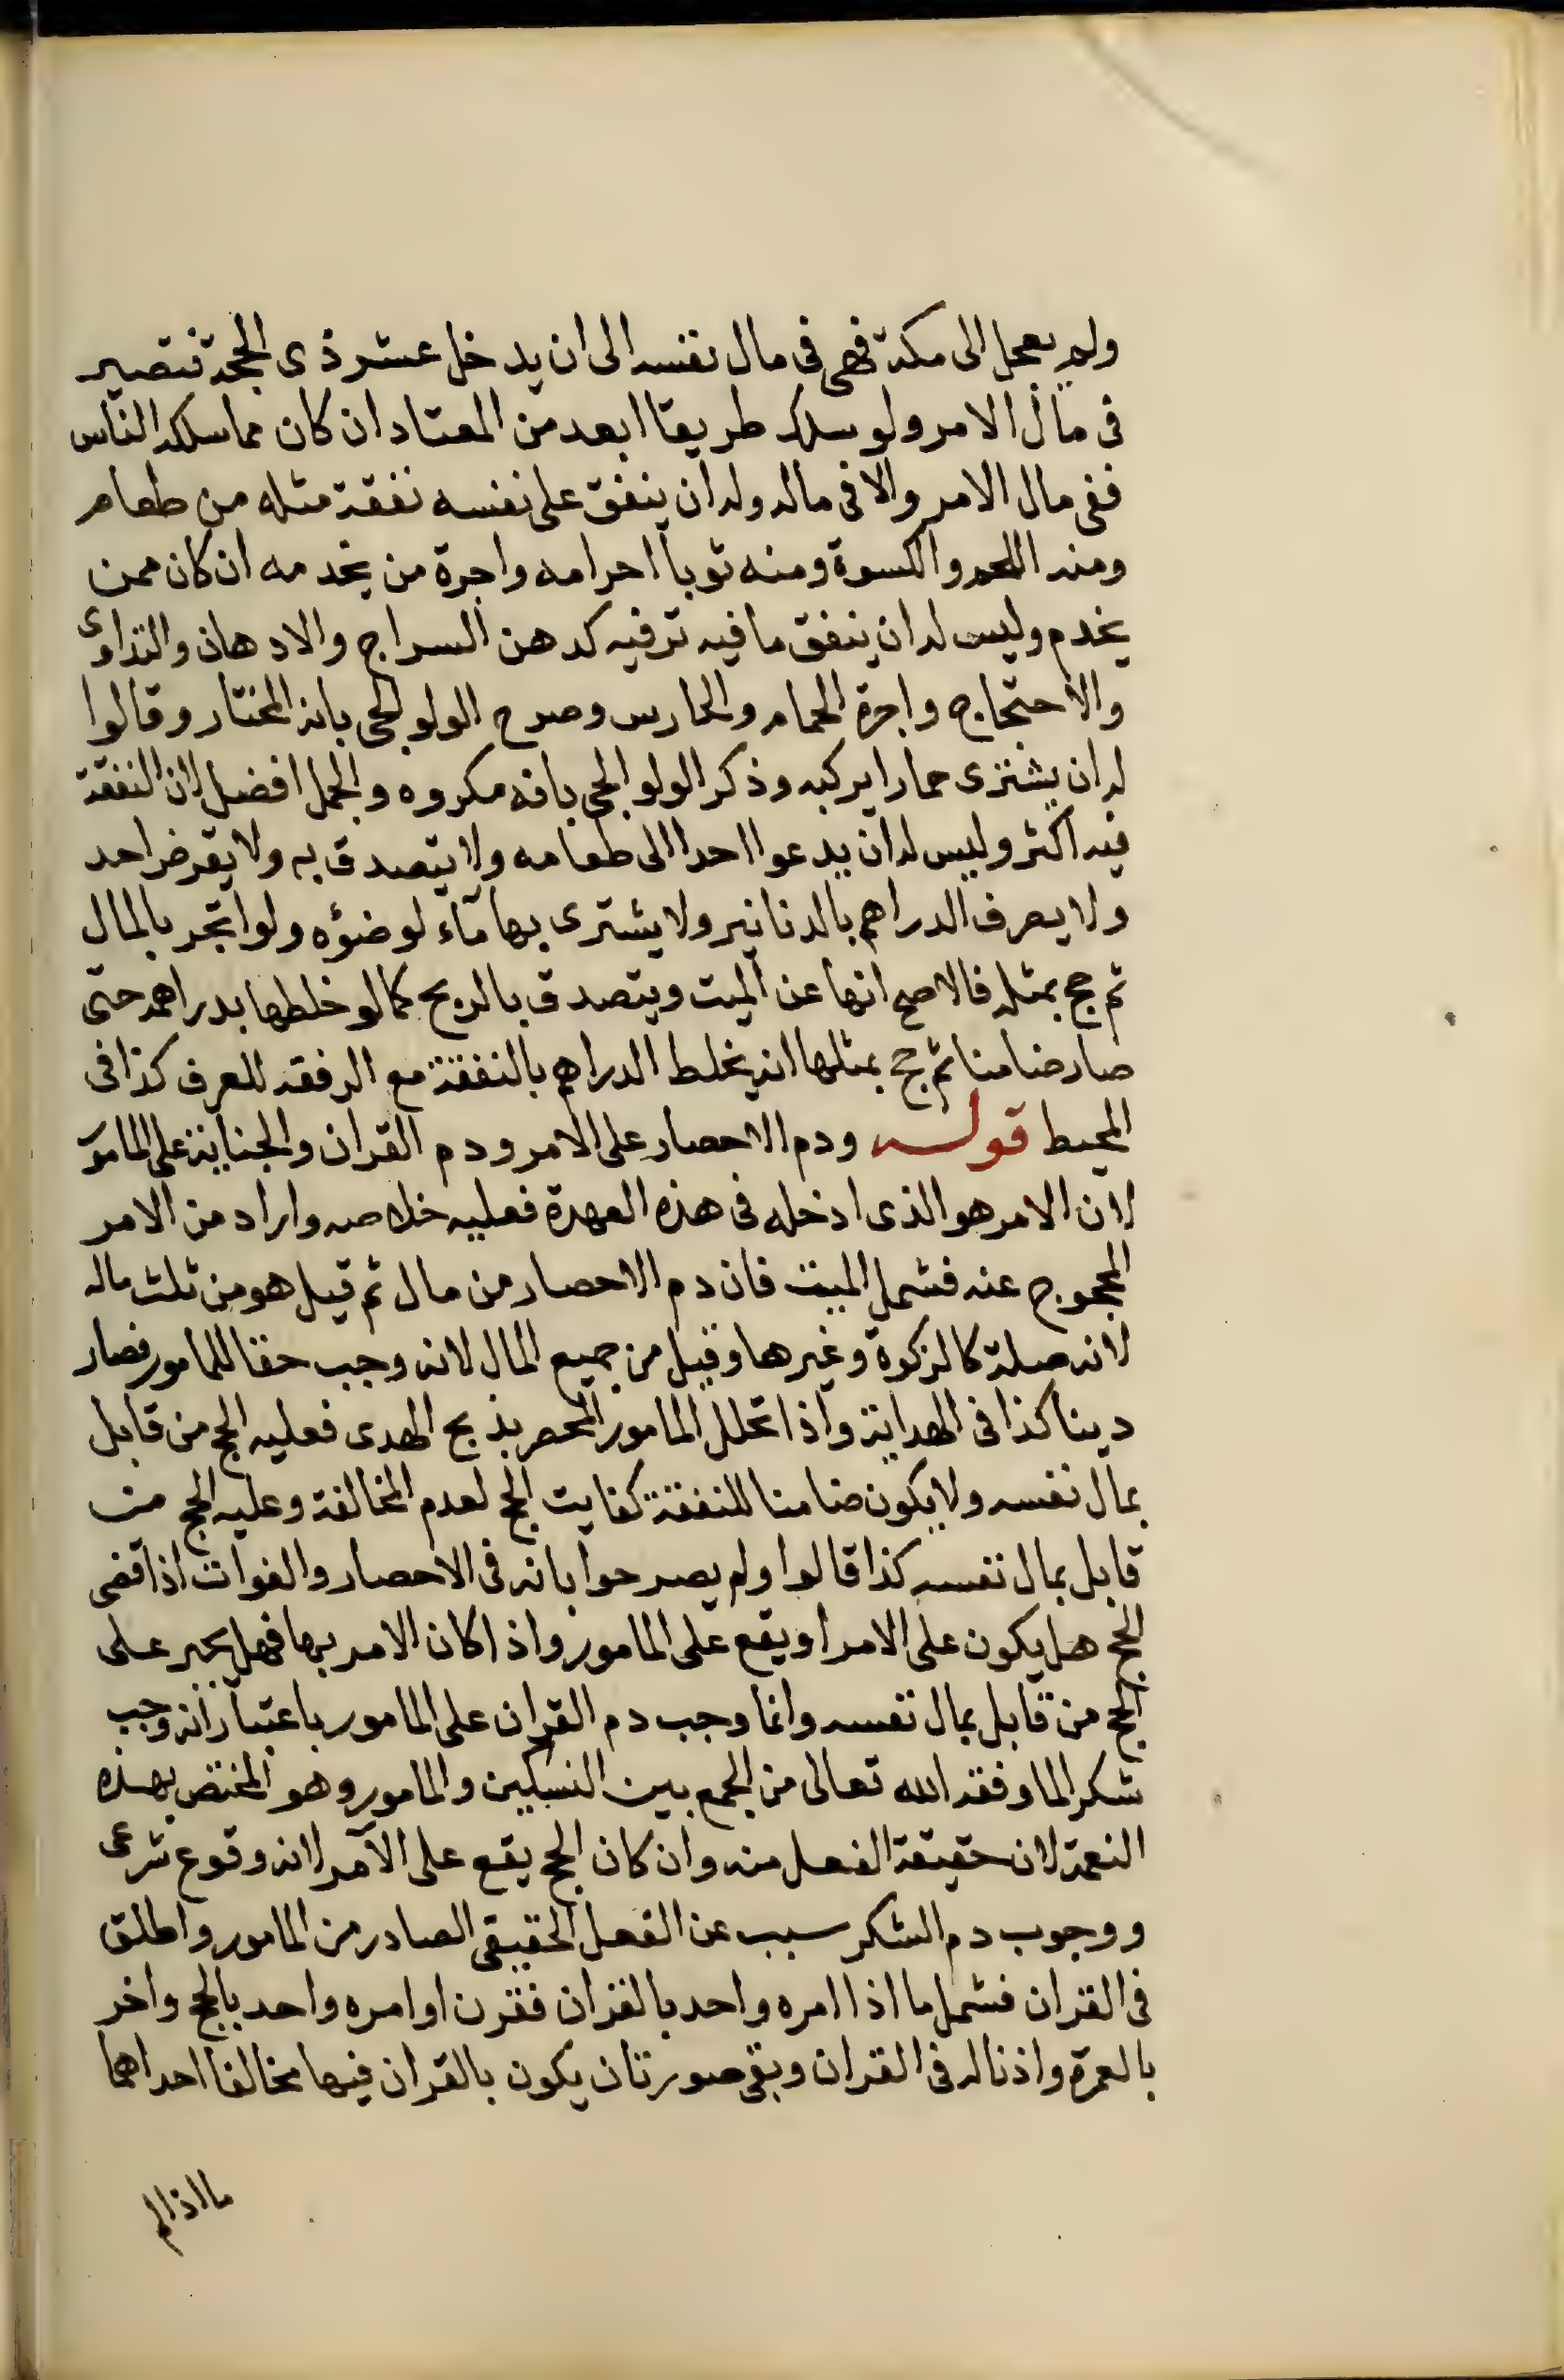 ولم يعجل الى مكة فهى فى مال نفسه الى ان يدخل عشر ذى الحجة فتصير
فى مال الامر ولو سلك طريقا ابعد من المعتاد ان كان مما سلكه الناس
ففى مال الامر والا فى ماله وله ان ينفق على نفسه نفقة مثله من طعام
ومنه اللحم والكسوة ومنه ثوبا احرامه واجرة من يخدمه ان كان ممن
يخدم وليس له ان ينفق ما فيه ترفيه كدهن السراج والادهان والتداوى
والاحتجاج واجرة الحمام والحارس وصرح الولوالجى بانه المختار وقالوا
له ان يشترى حمارا يركبه وذكر الولوالجى بانه مكروه والجمل افضل لان النفقة
فيه اكثر وليس له ان يدعوا احدا الى طعامه ولا يتصدق به ولا يقرض احد
ولا يصرف الدراهم بالدنانير ولا يشترى بها مآء لوضوئه ولو اتجر بالمال
ثم حج بمثله فالاصح انها عن الميت ويتصدق بالربح كما لو خلطها بدراهمه حتى
صار ضامنا ثم حج بمثلها انه يخلط الدراهم بالنفقة مع الرفقه للعرف كذا فى
المحيط قوله ودم الاحصار على الامر ودم القران والجناية على المامور
لان الامر هو الذى ادخله فى هذه العهدة فعليه خلاصه واراد من الامر
المحجوج عنه فشمل الميت فان دم الاحصار من مال ثم قيل هو من ثلث ماله
لانه صلة كالزكوة وغيرها وقيل من جميع المال لانه وجب حقا للمامور فصار
دينا كذا فى الهداية واذا تحلل المامور المحصر بذبح الهدى فعليه الحج من قابل
بمال نفسه ولا يكون ضامنا للنفقة كفايت الحج لعدم المخالفة وعليه الحج من
قابل بمال نفسه كذا قالوا ولم يصرحوا بانه فى الاحصار والفوات اذا قضى
الحج هل يكون على الامر او يقع على المامور واذا كان الامر بها فهل يجبر على
الحج من قابل بمال نفسه وانما وجب دم القران على المامور باعتبار انه وجب
شكر الما وفقه الله تعالى من الجمع بين النسكين والمامور وهو المختص بهذه
النعمة لان حقيقة الفعل منه وان كان الحج يقع على الآمر لانه وقوع شرعى
ووجوب دم الشكر سبب عن الفعل الحقيقى الصادر من المامور واطلق
فى القران فشمل ما اذا امره واحد بالقران فقرن او امره واحد بالحج واخر
بالعمرة واذنا له فى القران وبقى صورتان يكون بالقران فيها مخالفا احداهما
ما اذا لم